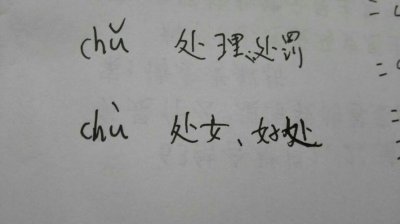 chǔ 处理、处罚
chù 处女、好处